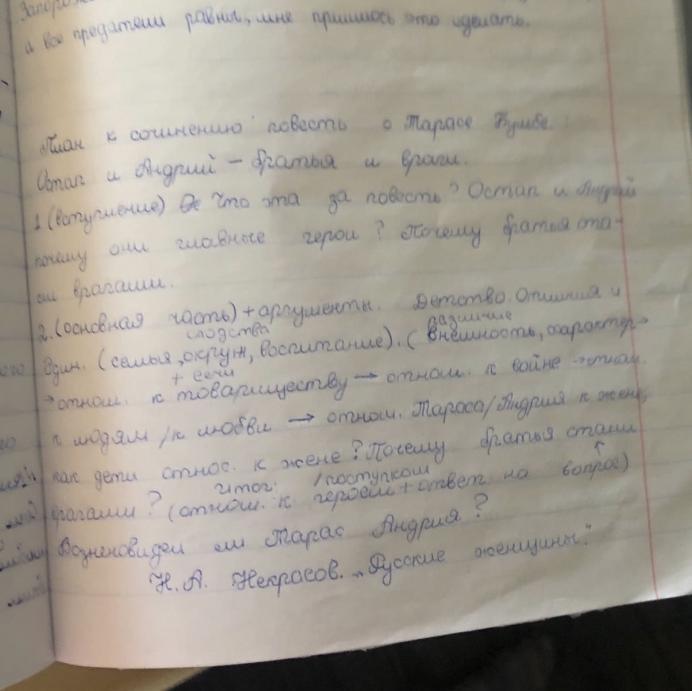 Запорож
а все предатели равны, мне пришлось это сделать.
План к сочинению повесть о Тарасе Бульбе.
Остап и Андрий – братья и враги.
1 (вступление) Что эта за повесть? Остап и Андрий
почему они главные герои? Почему братья ста-
ли врагами.
2. (основная часть) + аргументы. Детство. Отличия и
сходства различие
один. (семья, окруж, воспитание). (внешность, характер →
+ сечи
→ отнош. к товариществу → отнош. к войне → отнош.
к людям / к любви → отнош. Тараса/Андрия к жене,
как дети относ. к жене? Почему братья стали
итог: /поступкам
врагами? (отнош. к героям + ответ на вопрос)
Возненавидел ли Тарас Андрия?
Н. А. Некрасов. „Русские женщины."